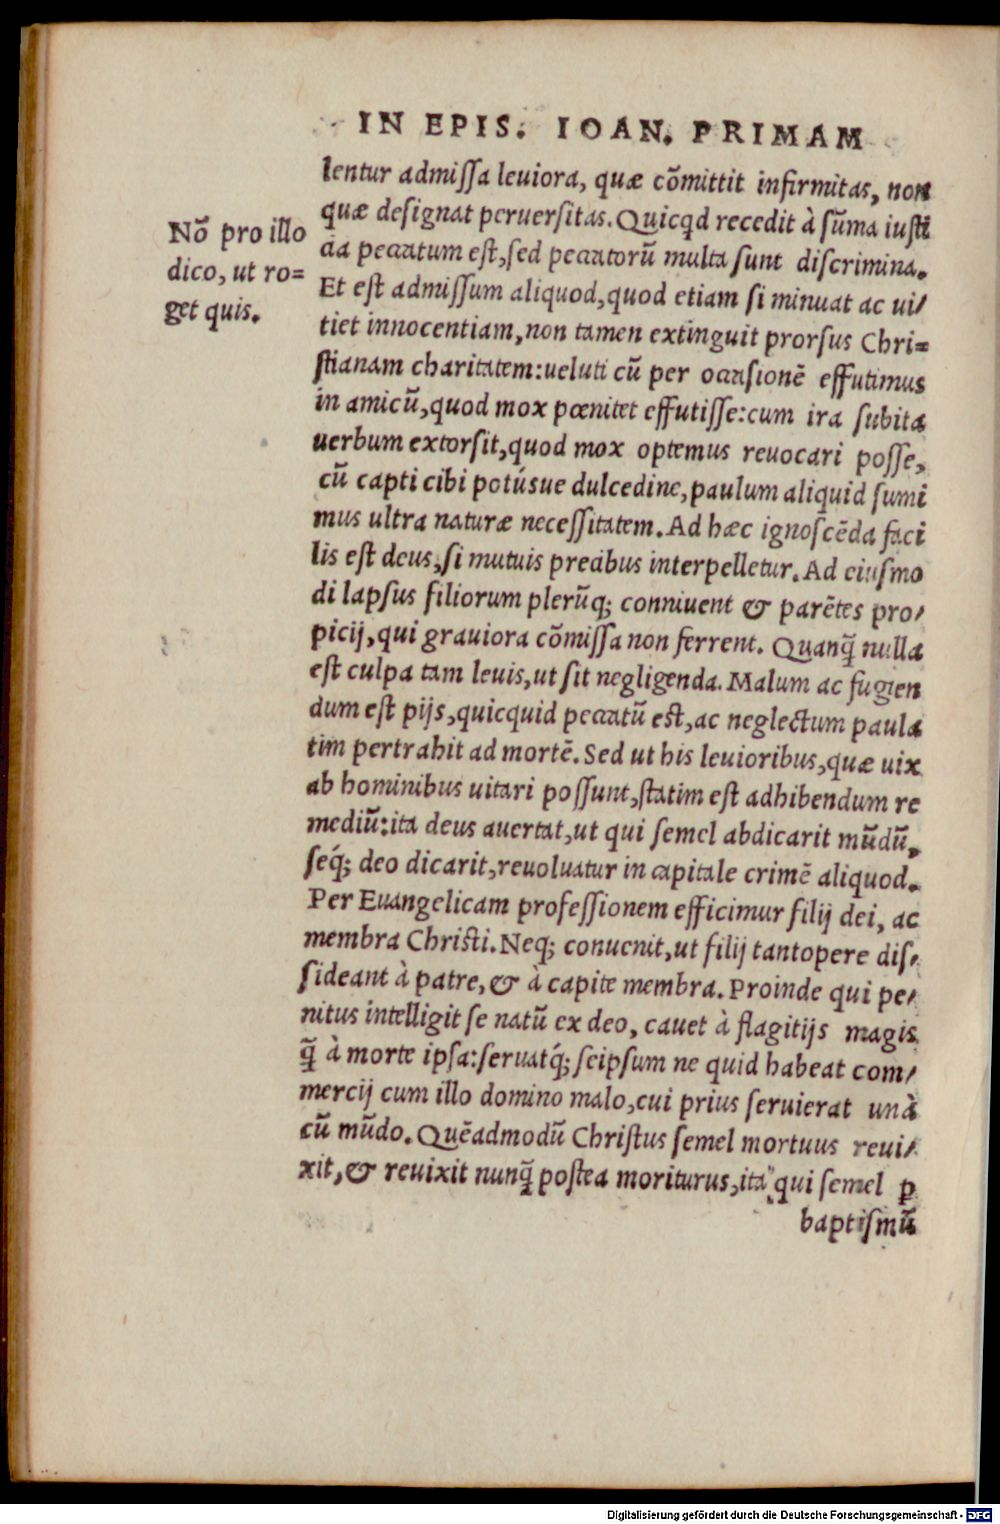 IN EPIS. IOAN. PRIMAM
lentur admissa leuiora, quæ cõmittit infirmitas, non
quæ designat peruersitas. Quicqd recedit à sũma iusti
cia peccatum est, sed peccatorũ multa sunt discrimina.
Et est admissum aliquod, quod etiam si minuat ac ui/
tiet innocentiam, non tamen extinguit prorsus Chri=
stianam charitatem: ueluti cũ per occasionẽ effutimus
in amicũ, quod mox pœnitet effutisse: cum ira subita
uerbum extorsit, quod mox optemus reuocari posse,
cũ capti cibi potúsue dulcedine, paulum aliquid sumi
mus ultra naturæ necessitatem. Ad hæc ignoscẽda faci
lis est deus, si mutuis precibus interpelletur. Ad eiusmo
di lapsus filiorum plerũq; conniuent & parẽtes pro/
picij, qui grauiora cõmissa non ferrent. Quanq̃ nulla
est culpa tam leuis, ut sit negligenda. Malum ac fugien
dum est pijs, quicquid peccatũ est, ac neglectum paula
tim pertrahit ad mortẽ. Sed ut his leuioribus, quæ uix
ab hominibus uitari possunt, statim est adhibendum re
mediũ: ita deus auertat, ut qui semel abdicarit mũdũ,
seq́; deo dicarit, reuoluatur in capitale crimẽ aliquod.
Per Euangelicam professionem efficimur filij dei, ac
membra Christi. Neq; conuenit, ut filij tantopere dis/
sideant à patre, & à capite membra. Proinde qui pe/
nitus intelligit se natũ ex deo, cauet à flagitijs magis
q̃ à morte ipsa: seruatq́; seipsum ne quid habeat com/
mercij cum illo domino malo, cui prius seruierat unà
cũ mũdo. Quẽadmodũ Christus semel mortuus reui/
xit, & reuixit nunq̃ postea moriturus, ita qui semel ꝑ
baptismũ
Nõ pro illo
dico, ut ro=
get quis.
Digitalisierung gefördert durch die Deutsche Forschungsgemeinschaft - DFG